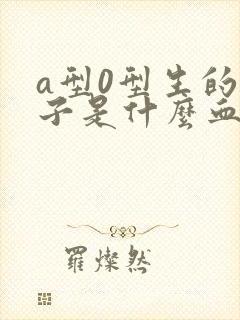 a型0型生的
子是什麼血
羅燦然